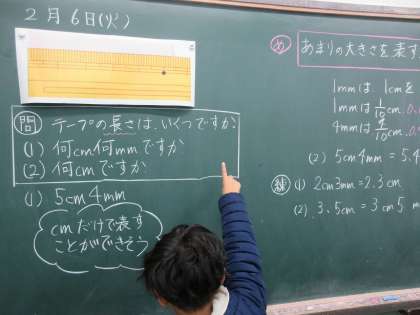 2月6日(火)
問 テープの長さは、いくつですか?
(1) 何cm何mmですか
(2) 何cmですか
(1) 5cm4mm
cmだけで表す
ことができそう
め あまりの大きさを表す
1mmは 1cmを
1mmは 1/10cm 0.
4mmは 4/10cm 0.
(2) 5cm4mm = 5.4
練 (1) 2cm3mm = 2.3cm
(2) 3.5cm = 3cm5m